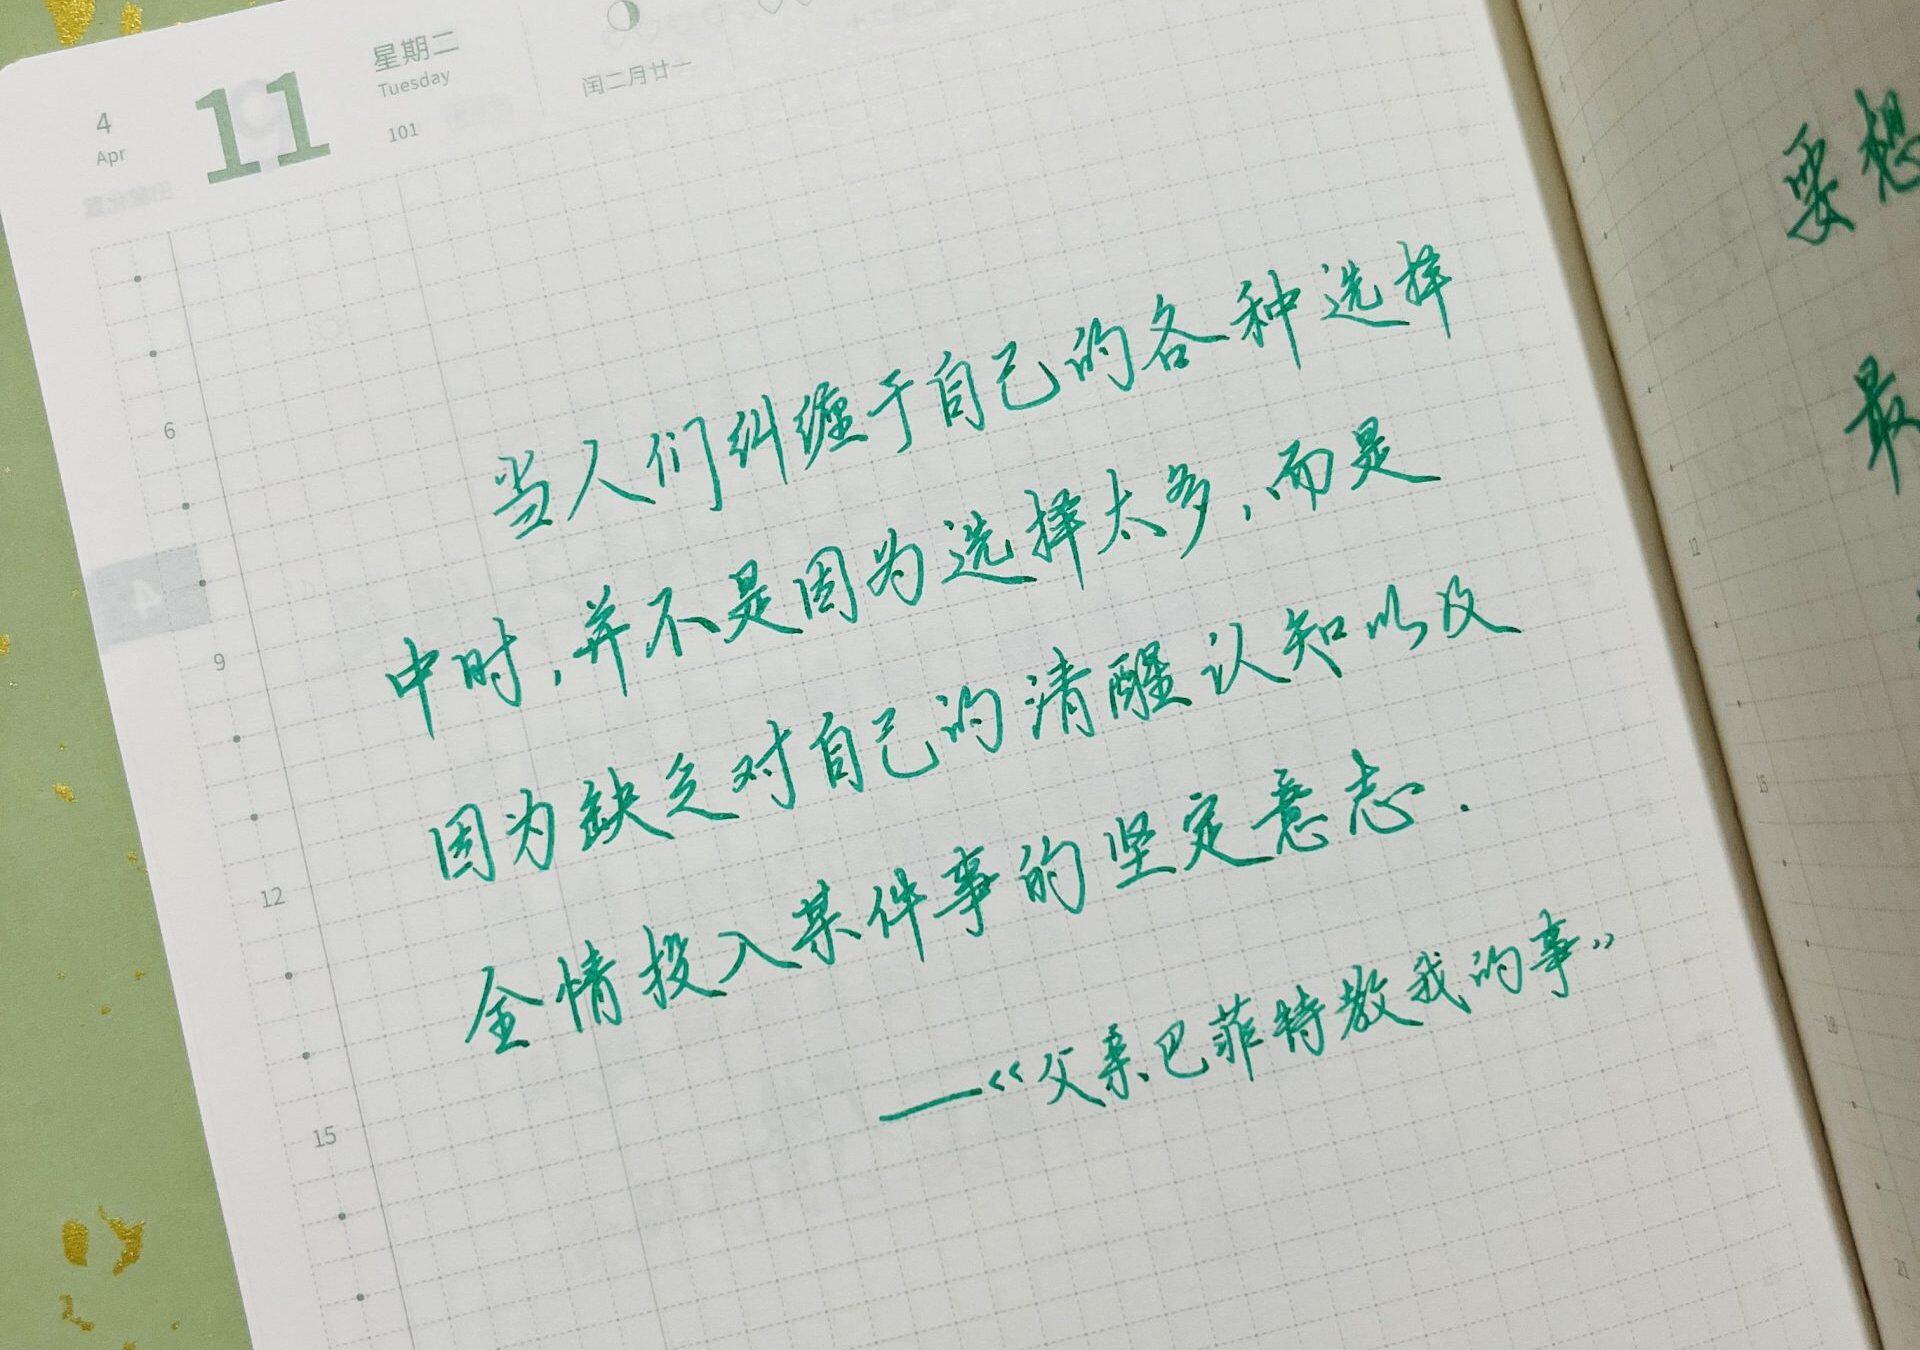 4
Apr
11
星期二
Tuesday
101
闰二月廿一
当人们纠缠于自己的各种选择
中时,并不是因为选择太多,而是
因为缺乏对自己的清醒认知以及
全情投入某件事的坚定意志.
——《父亲巴菲特教我的事》
6
9
12
15
4
要想
最
12
15
18
21